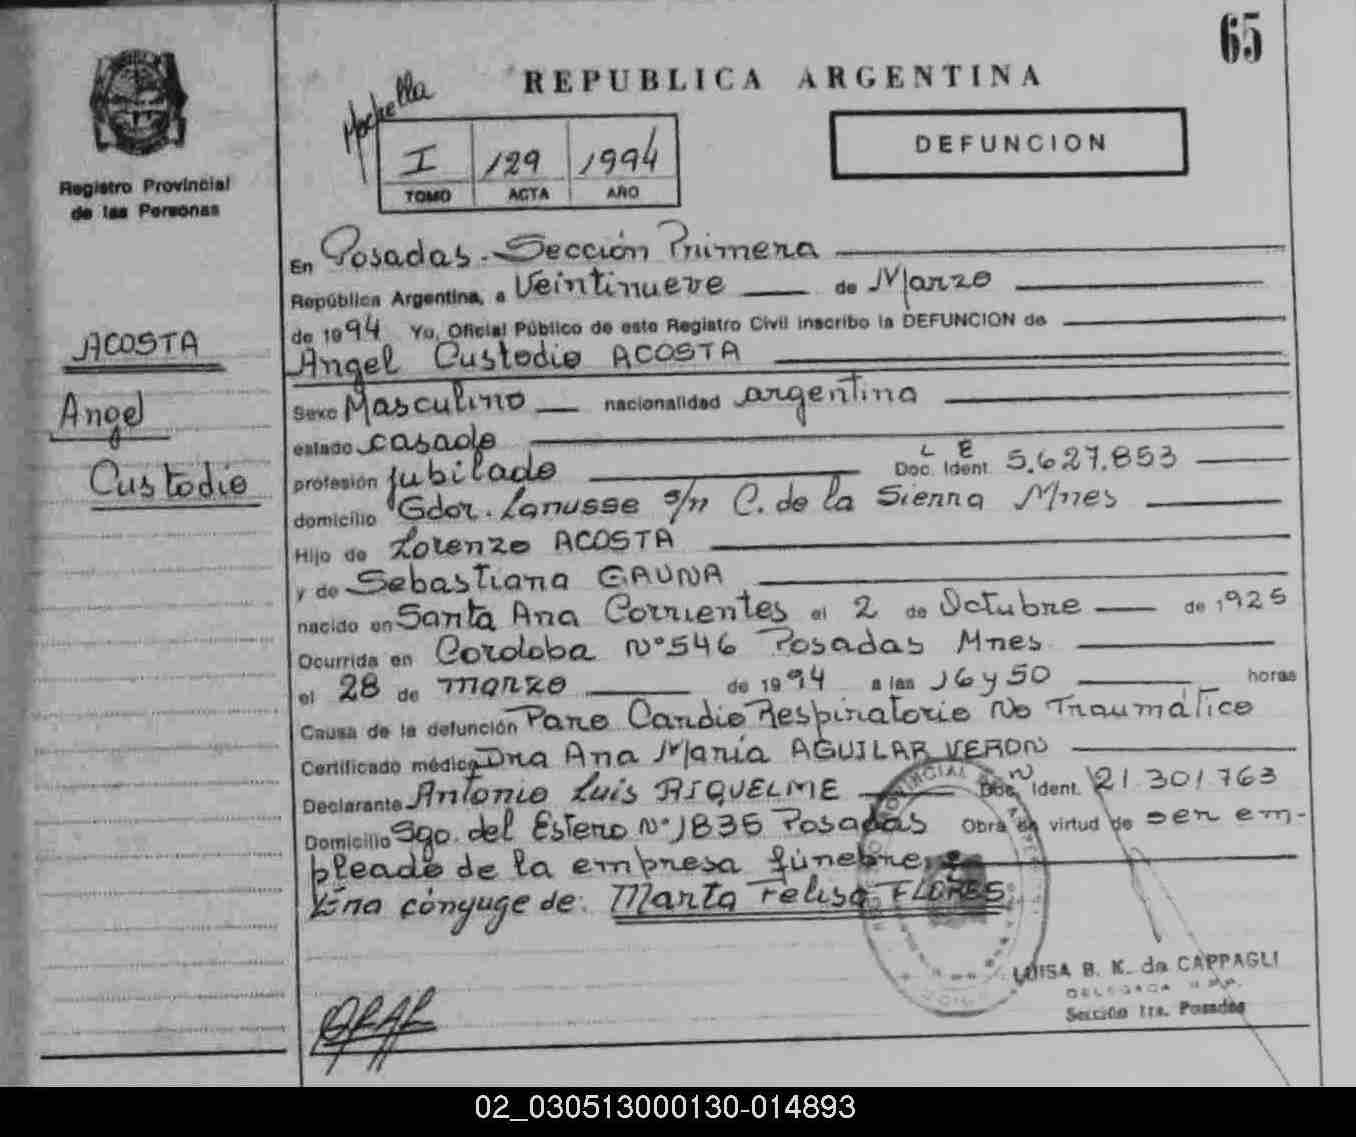 65
REPUBLICA ARGENTINA
Registro Provincial
de las Personas
I 129 1994
TOMO ACTA AÑO
DEFUNCION
ACOSTA
Angel
Custodio
En Posadas - Sección Primera
República Argentina, a Veintinueve de Marzo
de 1994 Yo, Oficial Público de este Registro Civil inscribo la DEFUNCION de
Angel Custodio ACOSTA
Sexo Masculino nacionalidad argentina
estado casado
profesión jubilado Doc. Ident. L E 5.627.853
domicilio Gdor. Lanusse s/n C. de la Sierra Mnes
Hijo de Lorenzo ACOSTA
y de Sebastiana GAUNA
nacido en Santa Ana Corrientes el 2 de Octubre de 1925
Ocurrida en Cordoba Nº 546 Posadas Mnes
el 28 de marzo de 1994 a las 16 y 50 horas
Causa de la defunción Paro Cardio Respiratorio No Traumático
Certificado médico Dra Ana María AGUILAR VERON
Declarante Antonio Luis RIQUELME Doc. Ident. 21.301.763
Domicilio Sgo. del Estero Nº 1835 Posadas Obra en virtud de ser em-
pleado de la empresa fúnebre
Era cónyuge de: Marta Felisa FLORES
LUISA B. K. de CAPPAGLI
DELEGADA
Sección 1ra. Posadas
02_030513000130-014893